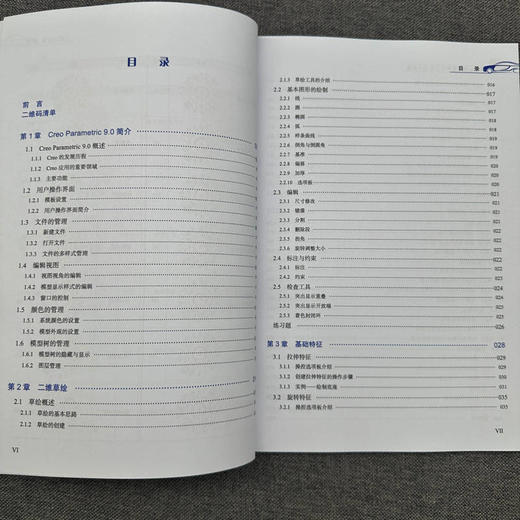 目 录
前 言
二维码清单
第 1 章 Creo Parametric 9.0 简介
1.1 Creo Parametric 9.0 概述
1.1.1 Creo 的发展历程
1.1.2 Creo 应用的重要领域
1.1.3 主要功能
1.2 用户操作界面
1.2.1 模板设置
1.2.2 用户操作界面简介
1.3 文件的管理
1.3.1 新建文件
1.3.2 打开文件
1.3.3 文件的多样式管理
1.4 编辑视图
1.4.1 视图视角的编辑
1.4.2 模型显示样式的编辑
1.4.3 窗口的控制
1.5 颜色的管理
1.5.1 系统颜色的设置
1.5.2 模型外观的设置
1.6 模型树的管理
1.6.1 模型树的隐藏与显示
1.6.2 图层管理
第 2 章 二维草绘
2.1 草绘概述
2.1.1 草绘的基本思路
2.1.2 草绘的创建
VI
目 录
2.1.3 草绘工具的介绍 016
2.2 基本图形的绘制 017
2.2.1 线 017
2.2.2 圆 017
2.2.3 椭圆 018
2.2.4 弧 018
2.2.5 样条曲线 019
2.2.6 倒角与倒圆角 019
2.2.7 基准 019
2.2.8 偏移 020
2.2.9 加厚 020
2.2.10 选项板 020
2.3 编辑 021
2.3.1 尺寸修改 021
2.3.2 镜像 021
2.3.3 分割 022
2.3.4 删除段 022
2.3.5 拐角 022
2.3.6 旋转调整大小 022
2.4 标注与约束 023
2.4.1 标注 023
2.4.2 约束 023
2.5 检查工具 024
2.5.1 突出显示重叠 024
2.5.2 突出显示开放端 024
2.5.3 着色封闭环 025
练习题 026
第 3 章 基础特征 028
3.1 拉伸特征 029
3.1.1 操控选项板介绍 029
3.1.2 创建拉伸特征的操作步骤 030
3.1.3 实例——绘制底座 030
3.2 旋转特征 035
3.2.1 操控选项板介绍 035
VII